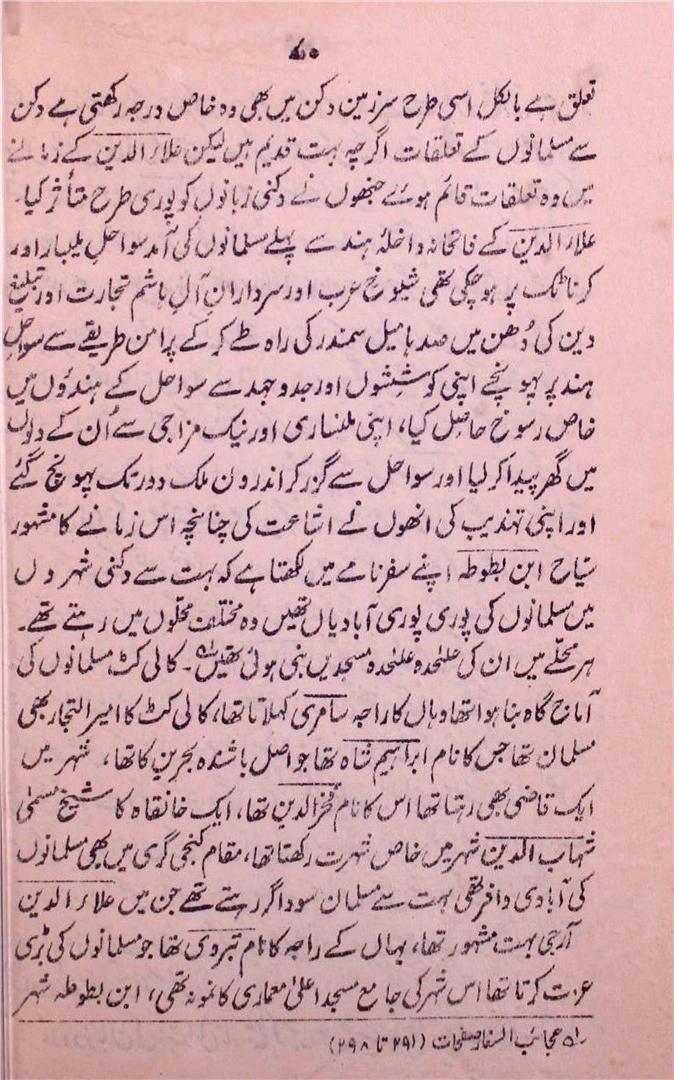 ۷۰
تعلق ہے بالکل اسی طرح سرزمین دکن میں بھی وہ خاص درجہ رکھتی ہے دکن
سے مسلمانوں کے تعلقات اگرچہ بہت قدیم ہیں لیکن علاء الدین کے زمانے
میں وہ تعلقات قائم ہوئے جنھوں نے دکنی زبانوں کو پوری طرح متأثر کیا۔
علاء الدین کے فاتحانہ داخلۂ ہند سے پہلے مسلمانوں کی آمد سواحلِ ملیبار اور
کرناٹک پر ہوچکی تھی شیوخ عرب اور سردارانِ آلِ ہاشم تجارت اور تبلیغ
دین کی دُھن میں صدہا میل سمندر کی راہ طے کر کے پرامن طریقے سے سواحلِ
ہند پر پہونچے اپنی کوششوں اور جدوجہد سے سواحل کے ہندوؤں میں
خاص رسوخ حاصل کیا، اپنی ملنساری اور نیک مزاجی سے اُن کے دلوں
میں گھر پیدا کر لیا اور سواحل سے گزر کر اندرون ملک دور تک پہونچ گئے
اور اپنی تہذیب کی انھوں نے اشاعت کی چنانچہ اس زمانے کا مشہور
سیاح ابن بطوطہ اپنے سفرنامے میں لکھتا ہے کہ بہت سے دکنی شہروں
میں مسلمانوں کی پوری پوری آبادیاں تھیں وہ مختلف محلوں میں رہتے تھے۔
ہر محلّے میں ان کی علٰحدہ علٰحدہ مسجدیں بنی ہوئی تھیں لہ۔ کالی کٹ مسلمانوں کی
آماج گاہ بنا ہوا تھا وہاں کا راجہ سامری کہلاتا تھا، کالی کٹ کا امیر التجار بھی
مسلمان تھا جس کا نام ابراہیم شاہ تھا جو اصل باشندہ بحرین کا تھا، شہر میں
ایک قاضی بھی رہتا تھا اس کا نام فخرالدین تھا، ایک خانقاہ کا شیخ مسمیٰ
شہاب الدین شہر میں خاص شہرت رکھتا تھا، مقام کنجی گری میں بھی مسلمانوں
کی آبادی وافر تھی بہت سے مسلمان سوداگر رہتے تھے جن میں علاء الدین
آرجی بہت مشہور تھا، یہاں کے راجہ کا نام تیروی تھا جو مسلمانوں کی بڑی
عزت کرتا تھا اس شہر کی جامع مسجد اعلیٰ معماری کا نمونہ تھی، ابن بطوطہ شہر
لہ عجائب السفار صفحات (۲۹۱ تا ۲۹۸)